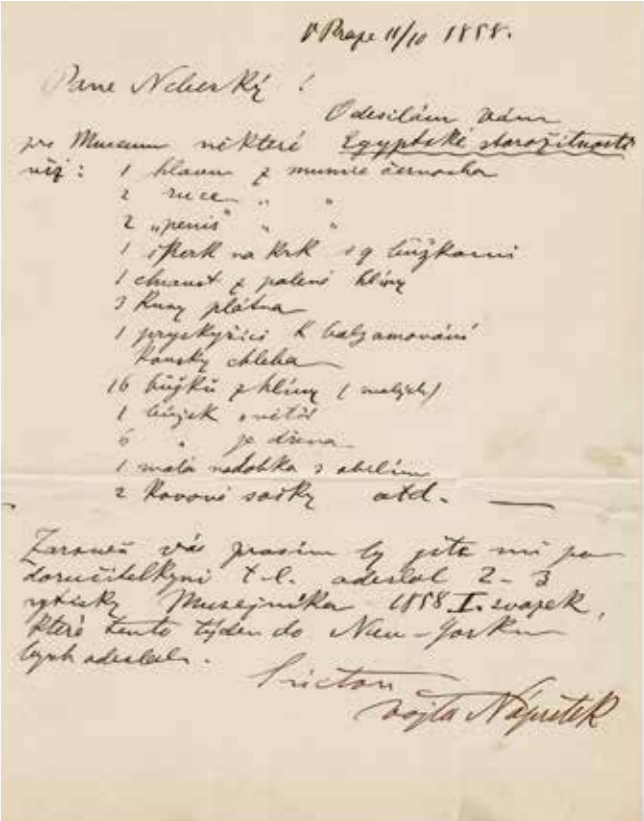 V Praze 11/10 1858.
Pane Nebeský !
Odesílám Vám
pro Museum některé Egyptské starožitnosti
než : 1 hlavu z mumie černocha
2 ruce „ „
2 „penis“ „ „
1 šperk na krk s 9 bůžkami
1 chrust z palené hlíny
3 kusy plátna
1 pryskyřici k balzamování
kousky chleba
16 bůžků z hlíny (malých)
1 bůžek větší
6 „ ze dřeva
1 malá nádobka s obilím
2 kovové sošky atd. —
Zároveň vás prosím by jste mi po
doručitelkyni t. l. odeslal 2 - 3
výtisky Musejníka 1858 I. svazek,
které tento týden do New-Yorku
bych odeslal.
S úctou
Vojta Náprstek